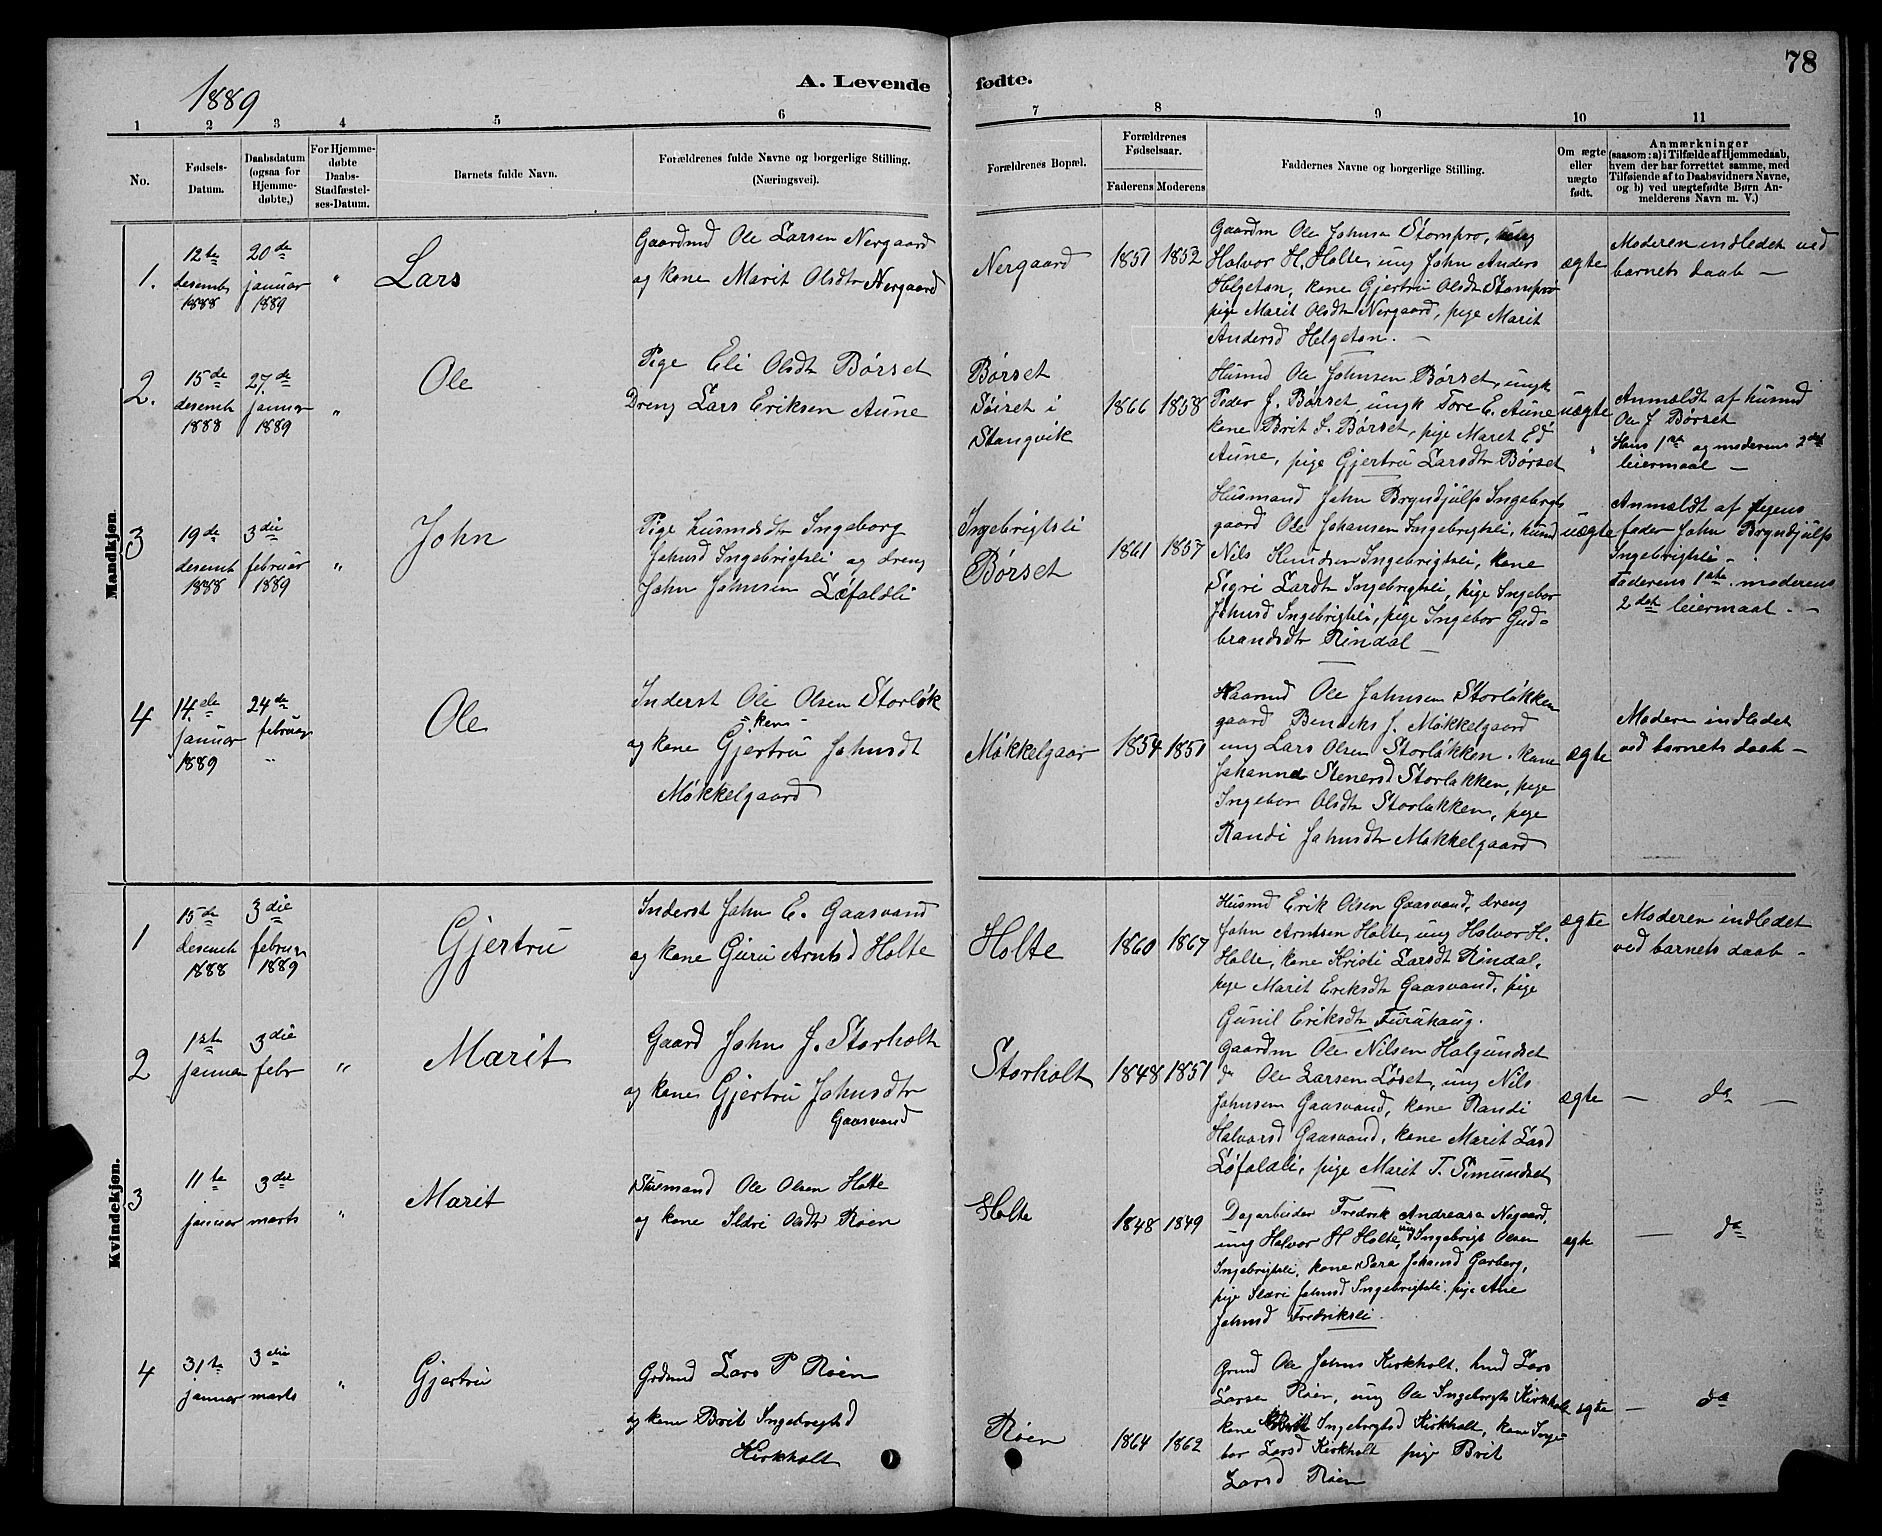 78
1889
A. Levende
fødte.
1 2 3 4 5 6
7 8 9 10 11
No.
Fødsels-
Datum.
Daabsdatum
(ogsaa for
Hjemme-
døbte,)
For Hjemme-
døbte
Daabs-
Stadfæstel-
ses-Datum.
Barnets fulde Navn.
Forældrenes fulde Navne og borgerlige Stilling.
(Næringsvei).
Forældrenes Bopæl.
Forældrenes
Fødselsaar.
Faderens Moderens
Faddernes Navne og borgerlige Stilling.
Om ægte
eller
uægte
født.
Anmærkninger
(saasom: a) i Tilfælde af Hjemmedaab,
hvem der har forrettet samme, med
Tilføiende af to Daabsvidners Navne,
og b) ved uægtefødte Børn An-
melderens Navn m. V.)
Mandkjøn.
1.
12te
desemb
1888
20de
januar
1889
"
Lars
Gaardmd Ole Larsen Nergaard
og kone Marit Olsdtr Nergaard
Nergaard
1851 1852
Gaardm Ole Johnsn Stompro,
Halvor H. Holte, ung John Anders
Helgeton, kone Gjertru Olsdt Stompro
pige Marit Olsdtr Nergaard, pige Marit
Andersd Helgeton. —
ægte
Moderen indledet ved
barnets daab —
2.
15de
desemb
1888
27de
januar
1889
"
Ole
Pige Eli Olsdt Børset
Dreng Lars Eriksen Aune
Børset
Søiset i
Stangvik
1866 1858
Husmd Ole Johnsen Børset, ungk
Peder J. Børset, ungk Tore E. Aune
kone Brit S. Børset, pige Maret Ed
Aune, pige Gjertru Larsdtr Børset
uægte
Anmældt af husmd
Ole J Børset
Hans 1ste og moderens 2det
leiermaal —
3
19de
desemb
1888
3die
februar
1889
"
John
Pige husmdsdtr Ingeborg
Johnsd Ingebrigtsli og dreng
John Johnsen Løfaldli
Ingebrigtsli
Børset
1861 1857
Husmand John Bryndjulfs Ingebrgts
gaard Ole Johansen Ingebrigtsli, husmd
Nils Knudsen Ingebrigtsli, kone
Sigri Larsdt Ingebrigtsli, pige Ingebor
Johnsd Ingebrigtsli, pige Ingebor Gud=
brandsdtr Rindal —
uægte
Anmældt af pigens
fader John Bryndjulfs
Ingebrigtsli —
Faderens 1ste. moderens
2det leiermaal. —
4
14de
januar
1889
24de
februar
"
Ole
Inderst Ole Olsen Storløk
=ken-
og kone Gjertru Johnsdt
Møkkelgaard
Møkkelgaar
1854 1851
Ole Johnsen Storløkken
gaard Bendiks J. Møkkelgaard
ung Lars Olsen Storløkken. kone
Johanna Stenersd Storløkken, pige
Ingebor Olsdtr Storløkken, pige
Randi Johnsdtr Møkkelgaard
ægte
Moderen indledet
ved barnets daab —
Kvindekjøn.
1
15de
desemb
1888
3die
februar
1889
Gjertru
Inderst John E. Gaasvand
og kone Guru Arntsd Holte
Holte
1860 1867
Husmd Erik Olsen Gaasvand, dreng
John Arntsen Holte, ung Halvor H.
Holte, kone Kristi Larsdt Rindal,
pige Marit Eriksdtr Gaasvand, pige
Gunil Eriksdtr Furuhaug.
ægte
Moderen indledet
ved barnets daab —
2
1ste
januar
3die
febr
"
Marit
Gaard John J. Storholt
og kone Gjertru Johnsdtr
Gaasvand
Storholt
1848 1851
Gaardm Ole Nilsen Halgundset
do Ole Larsen Løset, ung Nils
Johnsen Gaasvand, kone Randi
Halvorsd Gaasvand, kone Marit Larsd
Løfaldli, pige Marit T. Simundset
ægte
— do —
3
11te
januar
3die
marts
"
Marit
Ole Olsen Holte
og kone Ildri Olsdtr Røen
Holte
1848 1849
Dagarbeider Fredrik Andreasn Negaard,
ung Halvor H Holte, ung Ingebrigt Olsen
Ingebrigtsli, kone Sara Johansd Garberg,
pige Johnsd Ingebrigtsli. pige Ane
Johnsd Fredriksli.
ægte
— do
4
31te
januar
3die
marts
"
Gjertru
Grdmd Lars P Røen
og kone Brit Ingebrigtsd
Kirkholt
Røen
1864 1862
Grmd Ole Johns Kirkholt, husmd Lars
Larsen Røen, ung Ole Ingebrigts Kirkholt
kone Brit Ingebrgtsd Kirkholt, kone Inge
bor Larsd Kirkholt pige Brit
Larsd Røen
ægte
— do